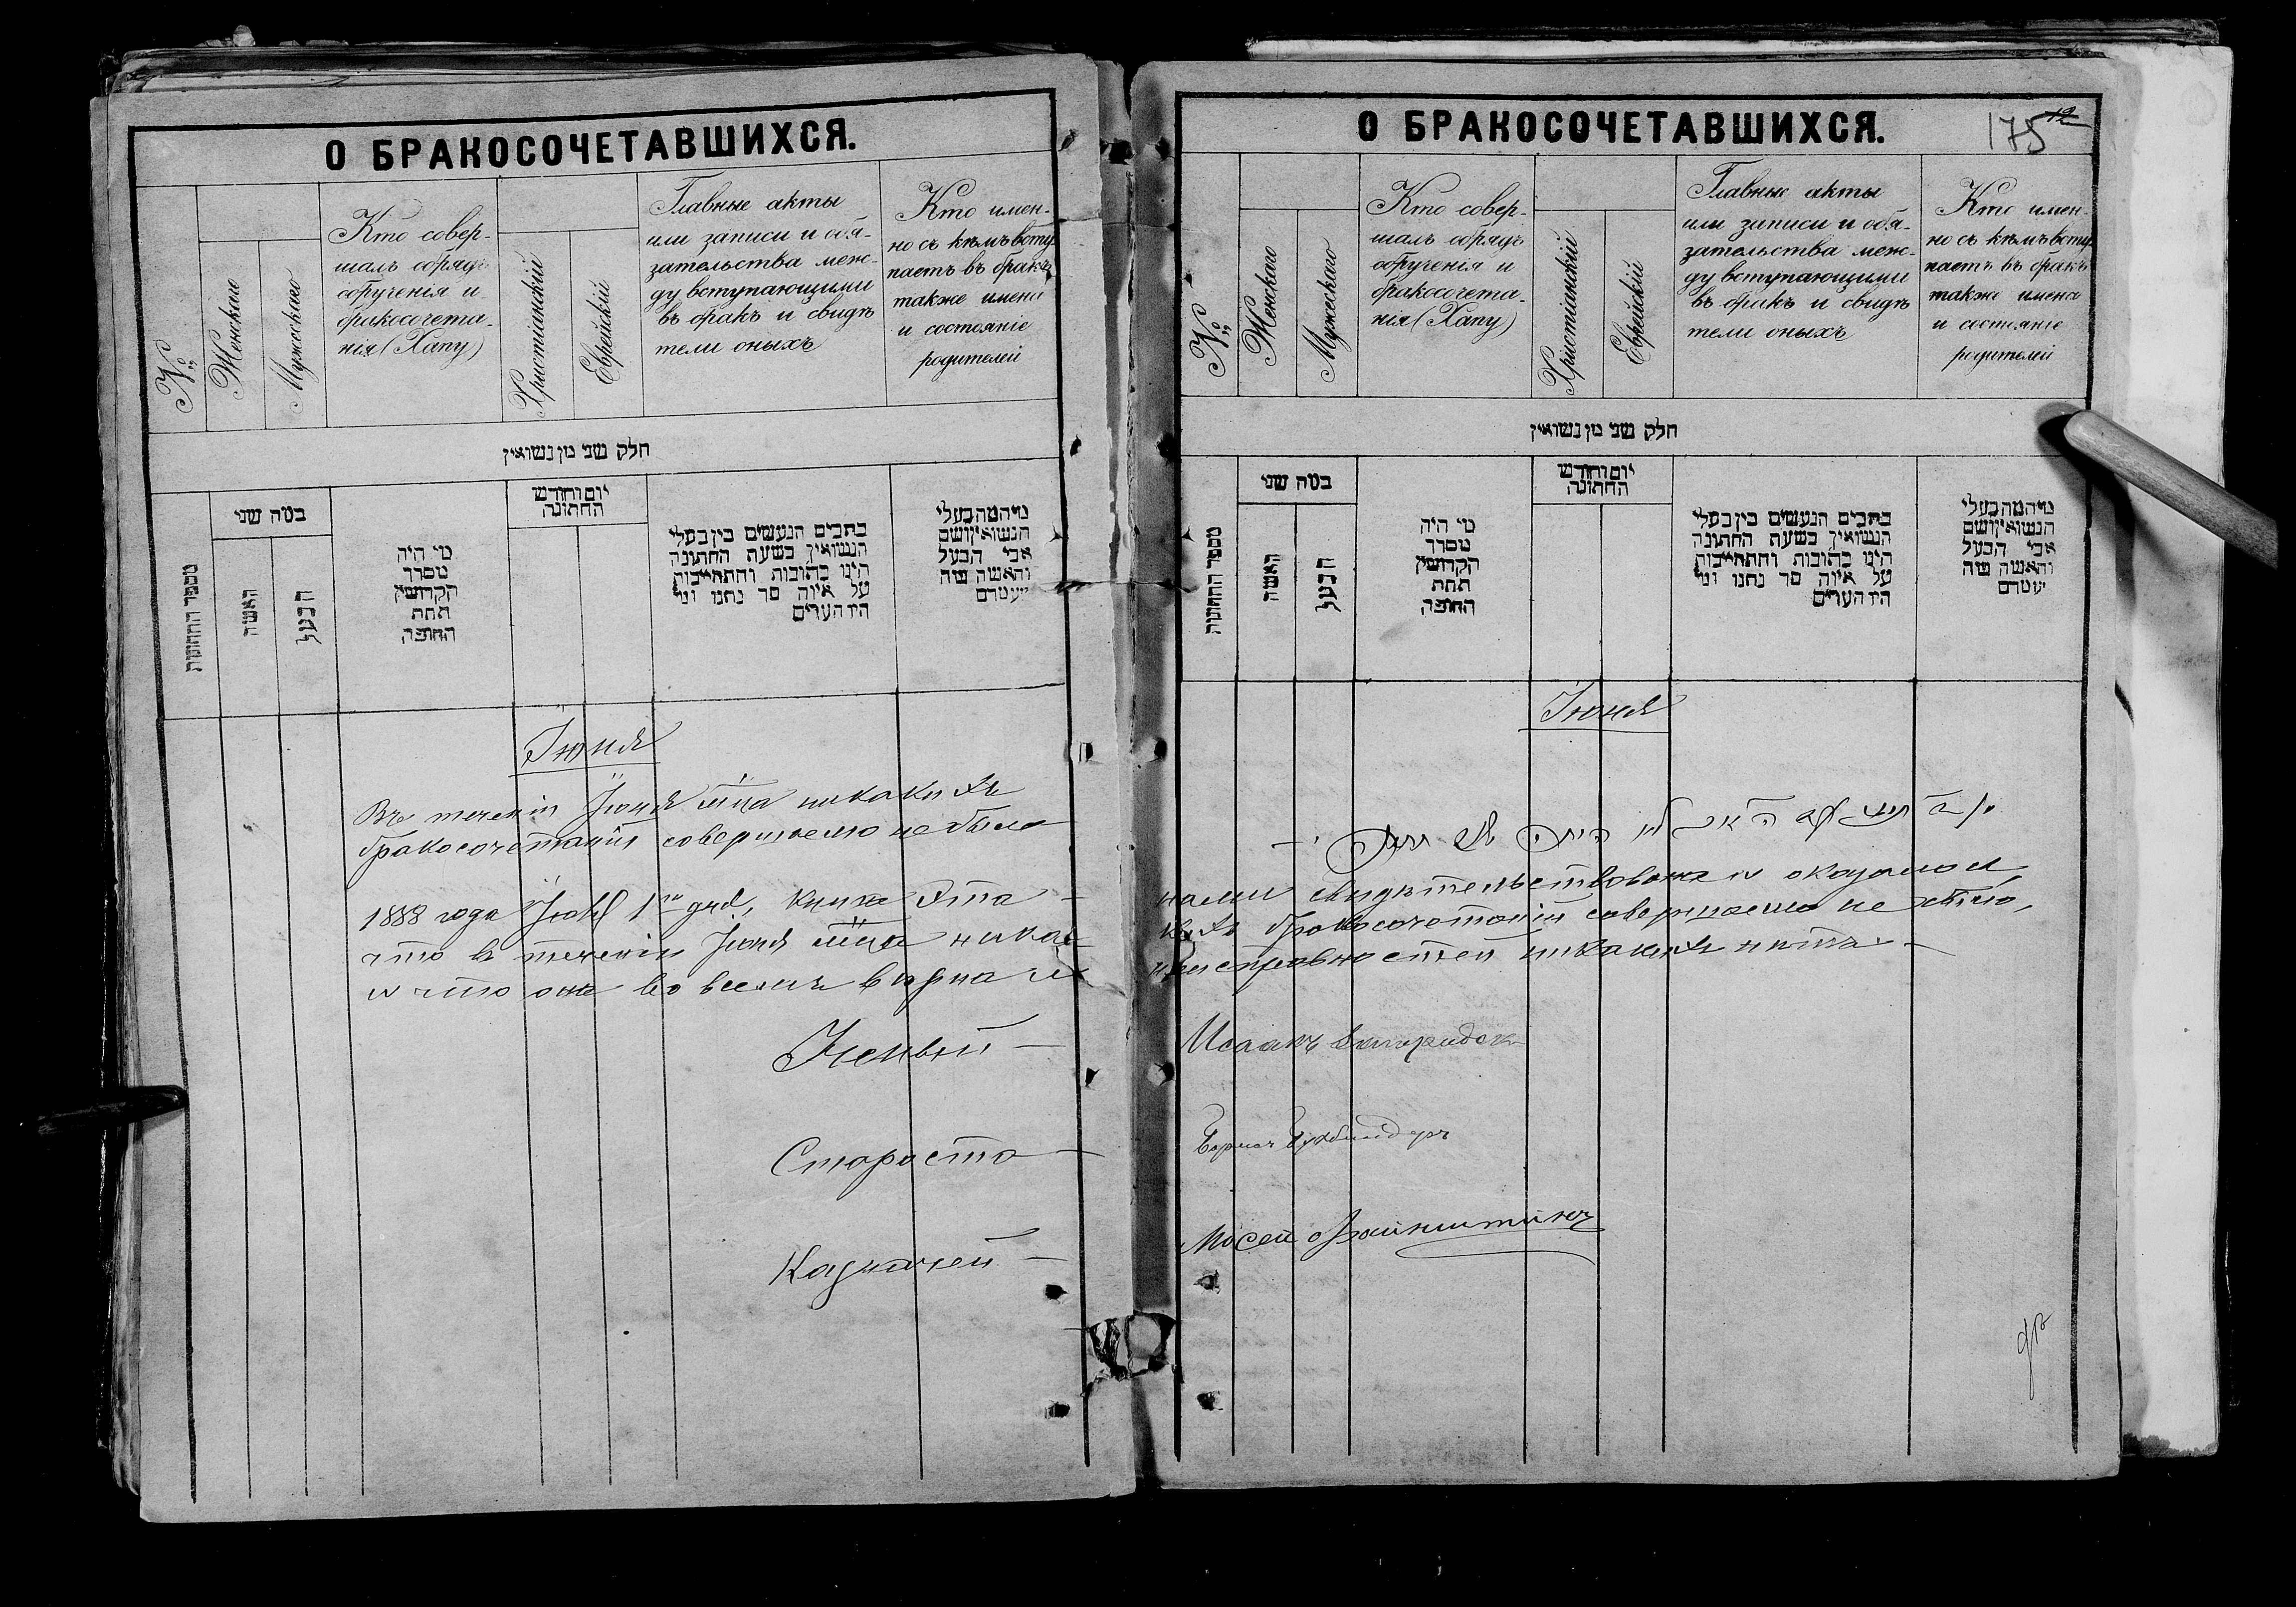 О БРАКОСОЧЕТАВШИХСЯ.
№
Женскаго
Мужескаго
Кто совер-
шалъ обрядъ
обрученія и
бракосочета-
нія (Хапу)
Христіанскій
Еврейскій
Главные акты
или записи и обя-
зательства меж-
ду вступающими
въ бракъ и свидѣ
тели оныхъ
Кто имен-
но съ кѣмъ всту
паетъ въ бракъ
также имена
и состояніе
родителей
חלק שני מן נשואין
מספר החתונות
כמה שני
האשה
הבעל
מי היה
מסדר
הקדושין
תחת
החופה
יום וחודש
החתונה
כתבים הנעשים בין בעלי
הנשואין בשעת החתונה
היינו כתובות והתחייבות
על איזה סך נתנו ומי
היו העדים
מי המה בעלי
הנשואין ושם
אבי הבעל
והאשה ומה
מעמדם
Іюня
Въ теченіи Іюня м-ца никакихъ
бракосочетаній совершаемо не было
1888 года Іюля 1го дня, книга эта
что въ теченіи Іюня м-ца ника-
и что она во всемъ вѣрна и
Ученый —
Староста —
Казначей —
О БРАКОСОЧЕТАВШИХСЯ.
175
12
№
Женскаго
Мужескаго
Кто совер-
шалъ обрядъ
обрученія и
бракосочета-
нія (Хапу)
Христіанскій
Еврейскій
Главные акты
или записи и обя-
зательства меж-
ду вступающими
въ бракъ и свидѣ
тели оныхъ
Кто имен-
но съ кѣмъ всту
паетъ въ бракъ
также имена
и состояніе
родителей
חלק שני מן נשואין
מספר החתונות
כמה שני
האשה
הבעל
מי היה
מסדר
הקדושין
תחת
החופה
יום וחודש
החתונה
כתבים הנעשים בין בעלי
הנשואין בשעת החתונה
היינו כתובות והתחייבות
על איזה סך נתנו ומי
היו העדים
מי המה בעלי
הנשואין ושם
אבי הבעל
והאשה ומה
מעמדם
Іюня
нами свидѣтельствована и оказалось
кихъ бракосочетаній совершаемо не было,
неисправностей никакихъ нѣтъ. —
Исаакъ
Мосей Файнштейнъ